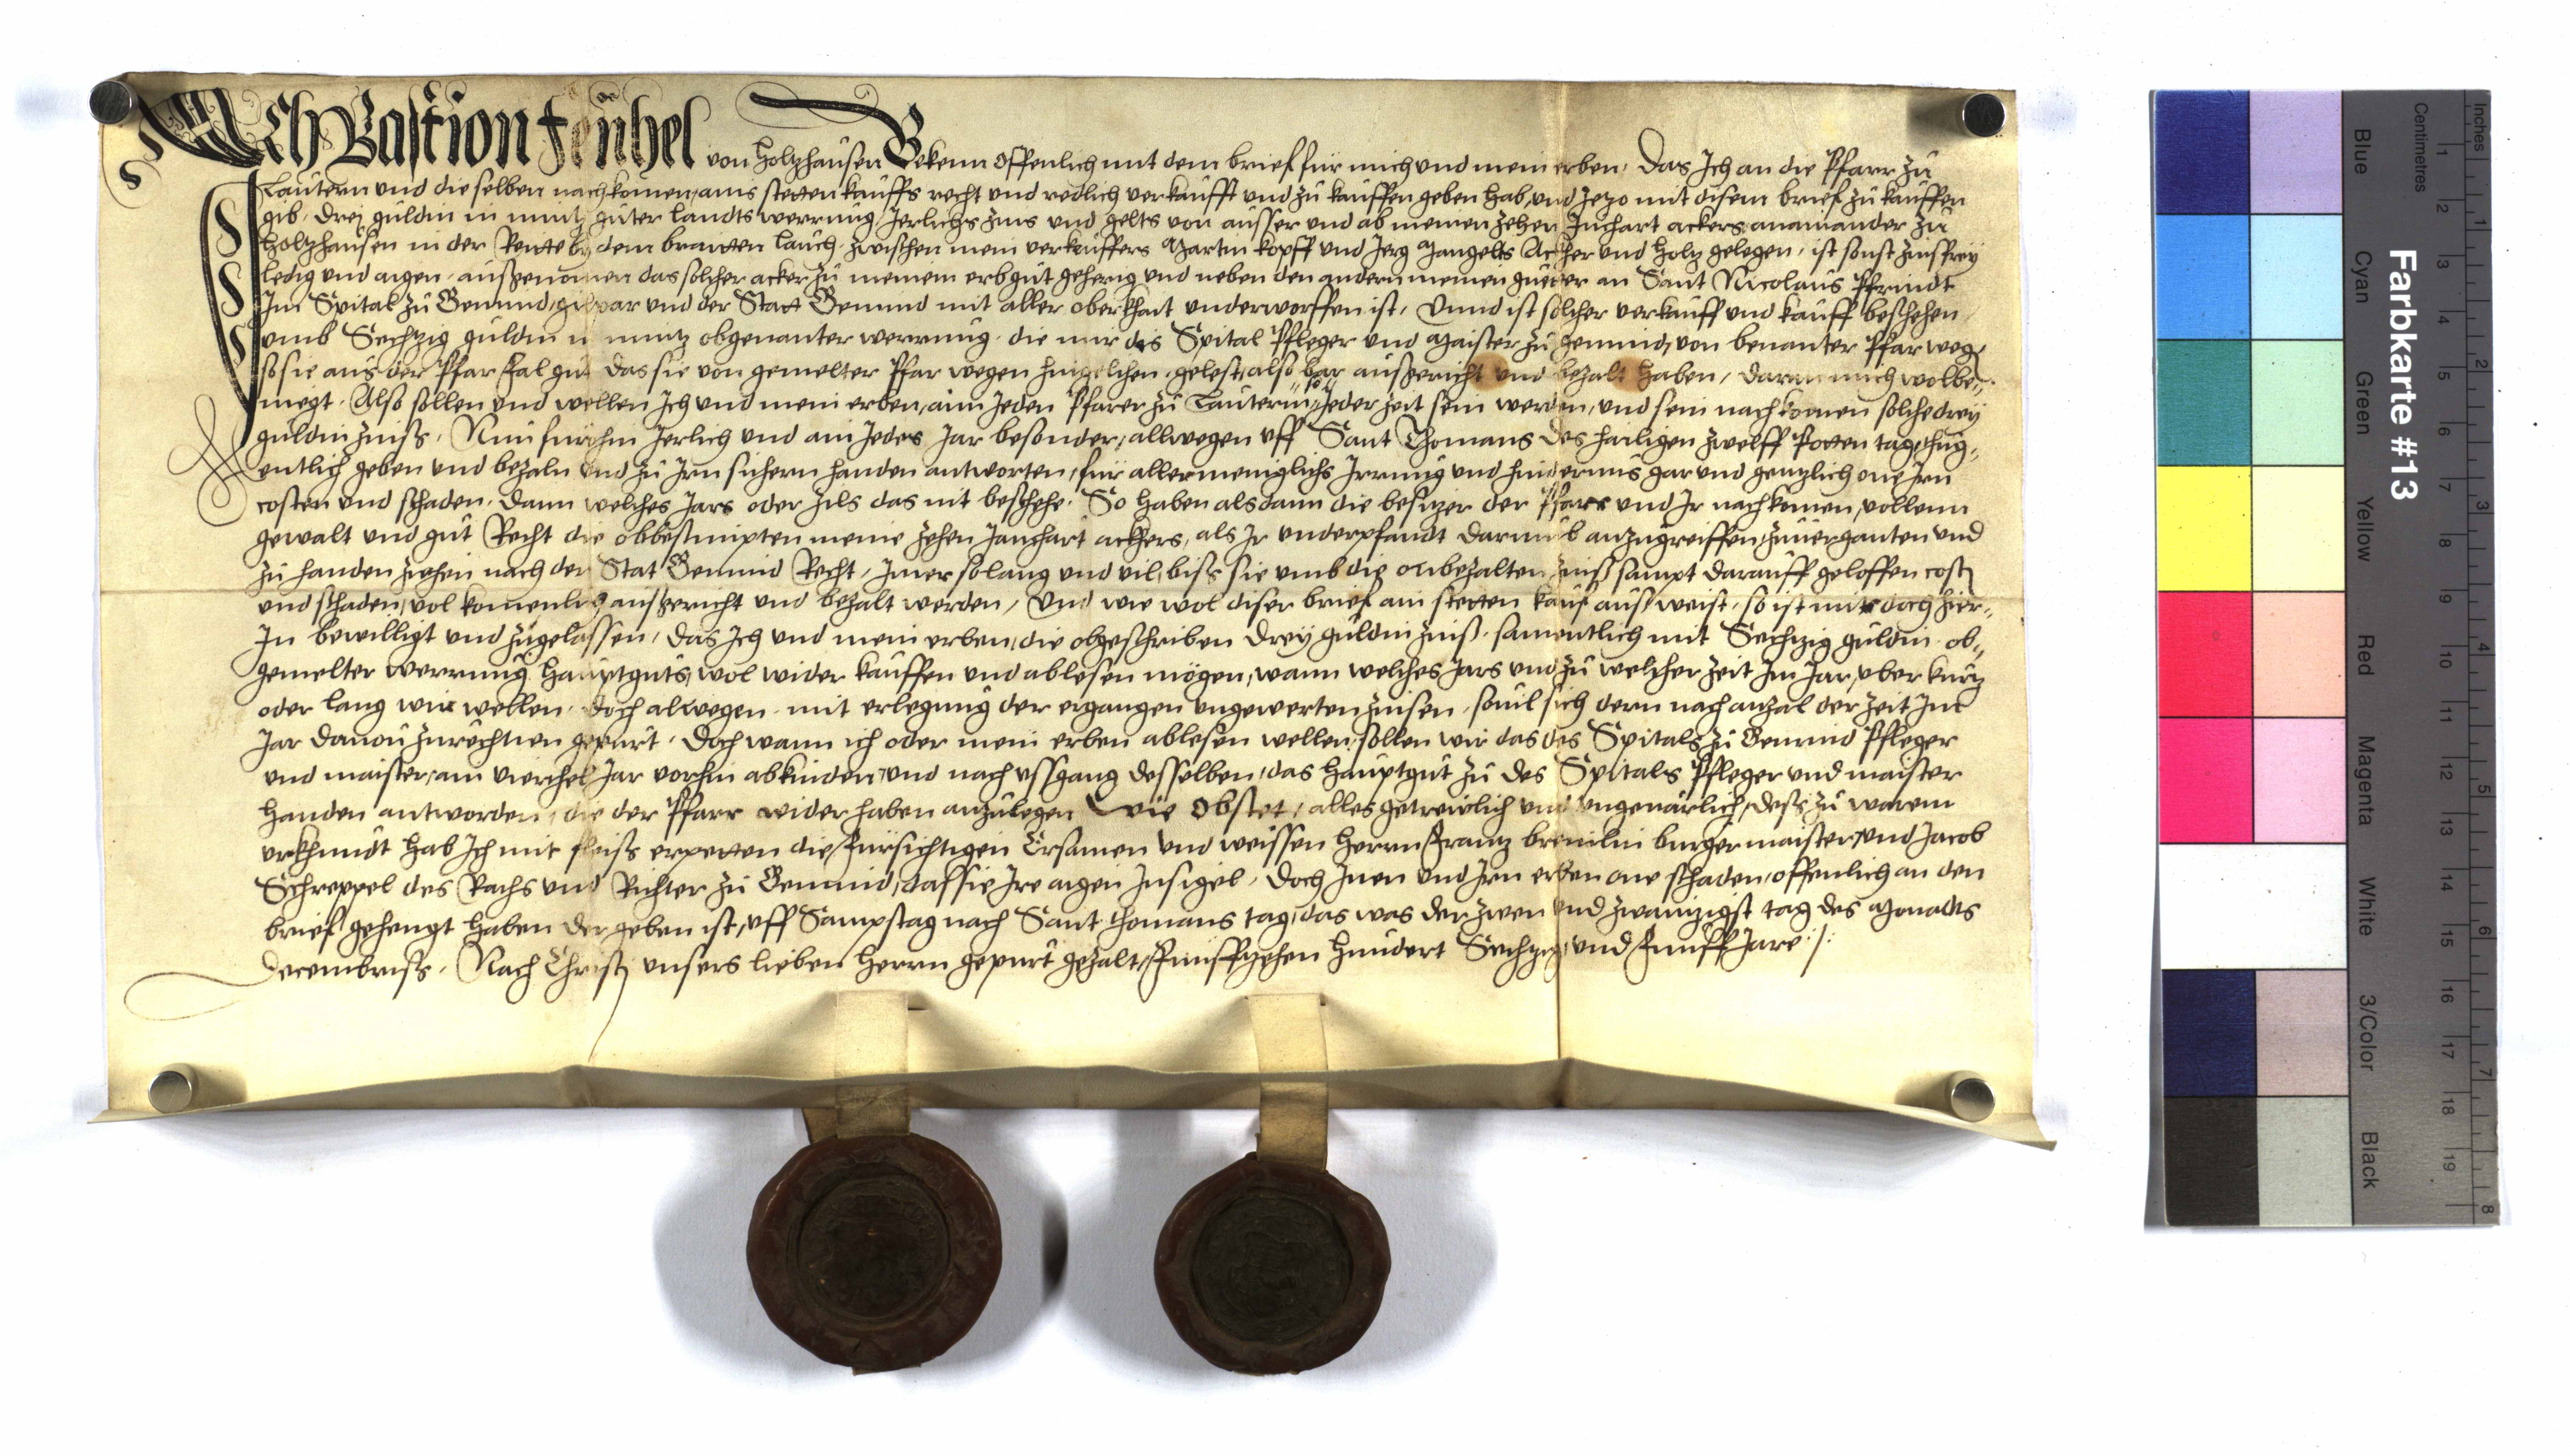 Ich Bastion Feühel von Holzhausen Bekenn offenlich mit dem brief für mich und mein erben, Das Ich an die Pfarr zu
Lautern und die selben nachkomen, ains stetten kauffs recht und redlich verkaufft und zu kauffen geben hab, und Jezo mit disem brief zu kauffen
gib, Drej guldin in muntz guter landts werrung, Jerlichs zins und gelts von ausser und ab meinen zehen Juchart ackers anainander zu
Holzhausen in der Reutte by dem braitten lauch, zwischen mein verkauffers Martin kopff und Jerg Mangolts Acker und Holz gelegen, ist sonst zinsfrey
ledig und aigen, außgenomen das solcher acker zu meinem erbgut geherig und neben den andern meinen guetter an Sant Nicolaus Pfrundt
Im Spital zu Gemund, gilpar und der Statt Gemund mit aller oberkhait underworffen ist, Unnd ist solcher verkauff und kauff beschehen
umb Sechzig guldin in muntz obgenanter werrung, die mir des Spital Pfleger und Maister zu gemund, von benanter Pfar weg,
so sie aus der Pfar Fal gut das sie von gemelter Pfar wegen hingelihen, gelest, also bar außgericht und bezalt haben, daran mich wolbe,,
niegt. Also sollen und wellen Ich und mein erben, aim Jeden Pfarer zu Lautern, so Jeder zeit sein werden, und sein nachkomen solche drey
guldin zinß, Nun furohin Jerlich und ain Jedes Jar besonder, allwegen uff Sant Thomans des hailigen zwelff Potten tag, thug,,
entlich geben und bezaln und zu Irn sichern handen antworten, für allermeniglichs Irrung und hindernus gar und gentzlich one Irn
costen und schaden. Dann welches Jars oder zils das nit beschehe. So haben alsdann die besitzer der Pfarr und Ir nachkomen, vollenn
gewalt und gut Recht die obbestimpten meine zehen Jauchart ackhers, als Ir underpfandt darumb anzugreiffen, zuverganten und
zu handen ziehen nach der Stat Gemund Recht, Imer solang und vil, biß sie umb die onbezalten zinß sampt darauff geloffen cost
und schaden, vol komenlich außgericht und bezalt werden, Und wie wol diser brief ain stetten kauf aus weist, so ist mir doch hier,,
In bewilligt und zugelassen, Das Ich und mein erben, die obgeschriben Drey guldin zinß, samentlich mit Sechzig guldin, ob,,
gemelter werrung, hauptguts, wol wider kauffen und ablesen mögen, wann welches Jars und zu welcher zeit Im Jar, uber kurtz
oder lang wir wellen, Doch alwegen mit erlegung der ergangen ungewerten zinsen, sovil sich dern nach anzal der zeit Im
Jar davon zurechnen gepurt. Doch wann ich oder mein erben ablesen wellen, sollen wir das des Spitals zu Gemund Pfleger
und maister, ain vierthel Jar vorhin abkinden, und nach ussgang desselben, das hauptgut zu des Spitals Pfleger und maister
handen antworden, die der Pfarr wider haben anzulegen Wie Obstet, alles getrewlich und ungevarlich, Deß zu warem
urkhundt hab Ich mit fleiss erpetten die fursichtigen Ersamen und weissen Herrn Frantz brenilin burgermaister, und Jacob
Schreppel des Raths und Richter zu Gemund, dass sie Ire aigen Insigel, Doch Inen und Irn erben one schaden, offenlich an den
brief gehengt haben, der geben ist, uff Sampstag nach Sant thomans tag, das was der zwen und zwaintzigst tag des Monats
Decembriß. Nach Christj unsers lieben Herrn gepurt gezalt, funffzehen hundert Sechzig und funff Jare :/:
Farbkarte #13
Inches
Centimetres
1 2 3 4 5 6 7 8
1 2 3 4 5 6 7 8 9 10 11 12 13 14 15 16 17 18 19
Blue
Cyan
Green
Yellow
Red
Magenta
White
3/Color
Black